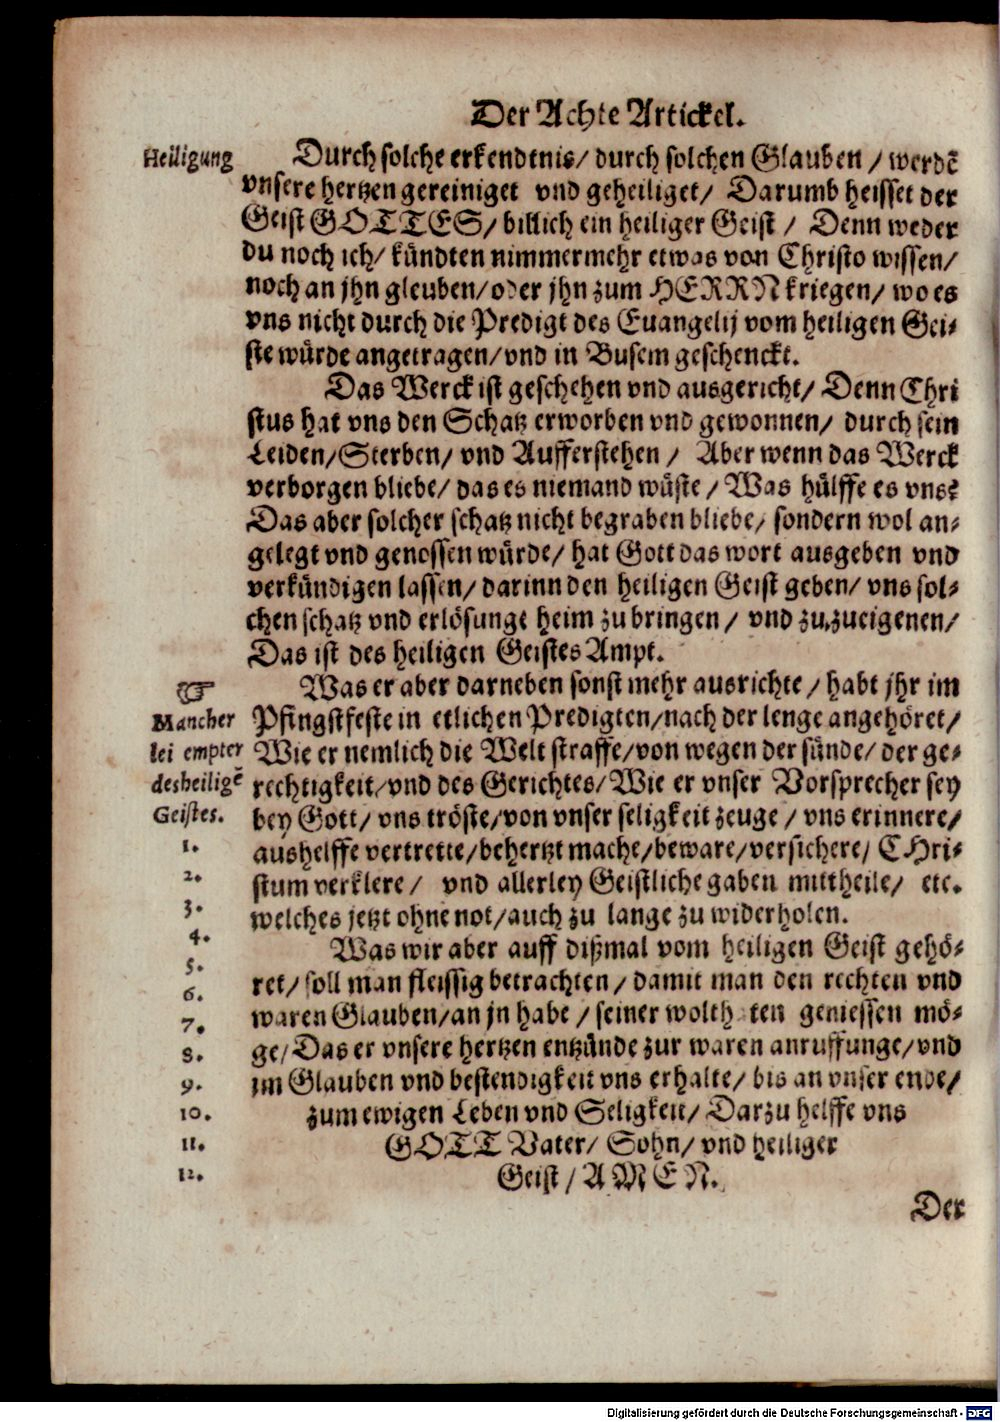 Der Achte Artickel.
Heiligung
Durch solche erkendtnis/ durch solchen Glauben / werdē
vnsere hertzen gereiniget vnd geheiliget/ Darumb heisset der
Geist GOTTES/ billich ein heiliger Geist / Denn weder
du noch ich/ kündten nimmermehr etwas von Christo wissen/
noch an jhn gleuben/ oder jhn zum HERRN kriegen/ wo es
vns nicht durch die Predigt des Euangelij vom heiligen Gei-
ste würde angetragen/ vnd in Busem geschenckt.
Das Werck ist geschehen vnd ausgericht/ Denn Chri
stus hat vns den Schatz erworben vnd gewonnen/ durch sein
Leiden/ Sterben/ vnd Aufferstehen / Aber wenn das Werck
verborgen bliebe/ das es niemand wüste / Was hülffe es vns?
Das aber solcher schatz nicht begraben bliebe/ sondern wol an-
gelegt vnd genossen würde/ hat Gott das wort ausgeben vnd
verkündigen lassen/ darinn den heiligen Geist geben/ vns sol-
chen schatz vnd erlösunge heim zu bringen / vnd zu zueigenen/
Das ist des heiligen Geistes Ampt.
☞
Mancher
lei empter
des heiligē
Geistes.
1.
2.
3.
4.
5.
6.
7.
8.
9.
10.
11.
12.
Was er aber darneben sonst mehr ausrichte / habt jhr im
Pfingstfeste in etlichen Predigten/ nach der lenge angehöret/
Wie er nemlich die Welt straffe/ von wegen der sünde/ der ge-
rechtigkeit/ vnd des Gerichtes/ Wie er vnser Vorsprecher sey
bey Gott/ vns tröste/ von vnser seligkeit zeuge / vns erinnere/
aushelffe vertrette/ behertzt mache/ beware/ versichere/ CHri-
stum verklere / vnd allerley Geistliche gaben mittheile/ etc.
welches jetzt ohne not/ auch zu lange zu widerholen.
Was wir aber auff dißmal vom heiligen Geist gehö-
ret/ soll man fleissig betrachten / damit man den rechten vnd
waren Glauben/ an jn habe / seiner wolthaten geniessen mö-
ge/ Das er vnsere hertzen entzünde zur waren anruffunge/ vnd
im Glauben vnd bestendigkeit vns erhalte/ bis an vnser ende/
zum ewigen Leben vnd Seligkeit/ Darzu helffe vns
GOTT Vater/ Sohn/ vnd heiliger
Geist / AMEN.
Der
Digitalisierung gefördert durch die Deutsche Forschungsgemeinschaft - DFG